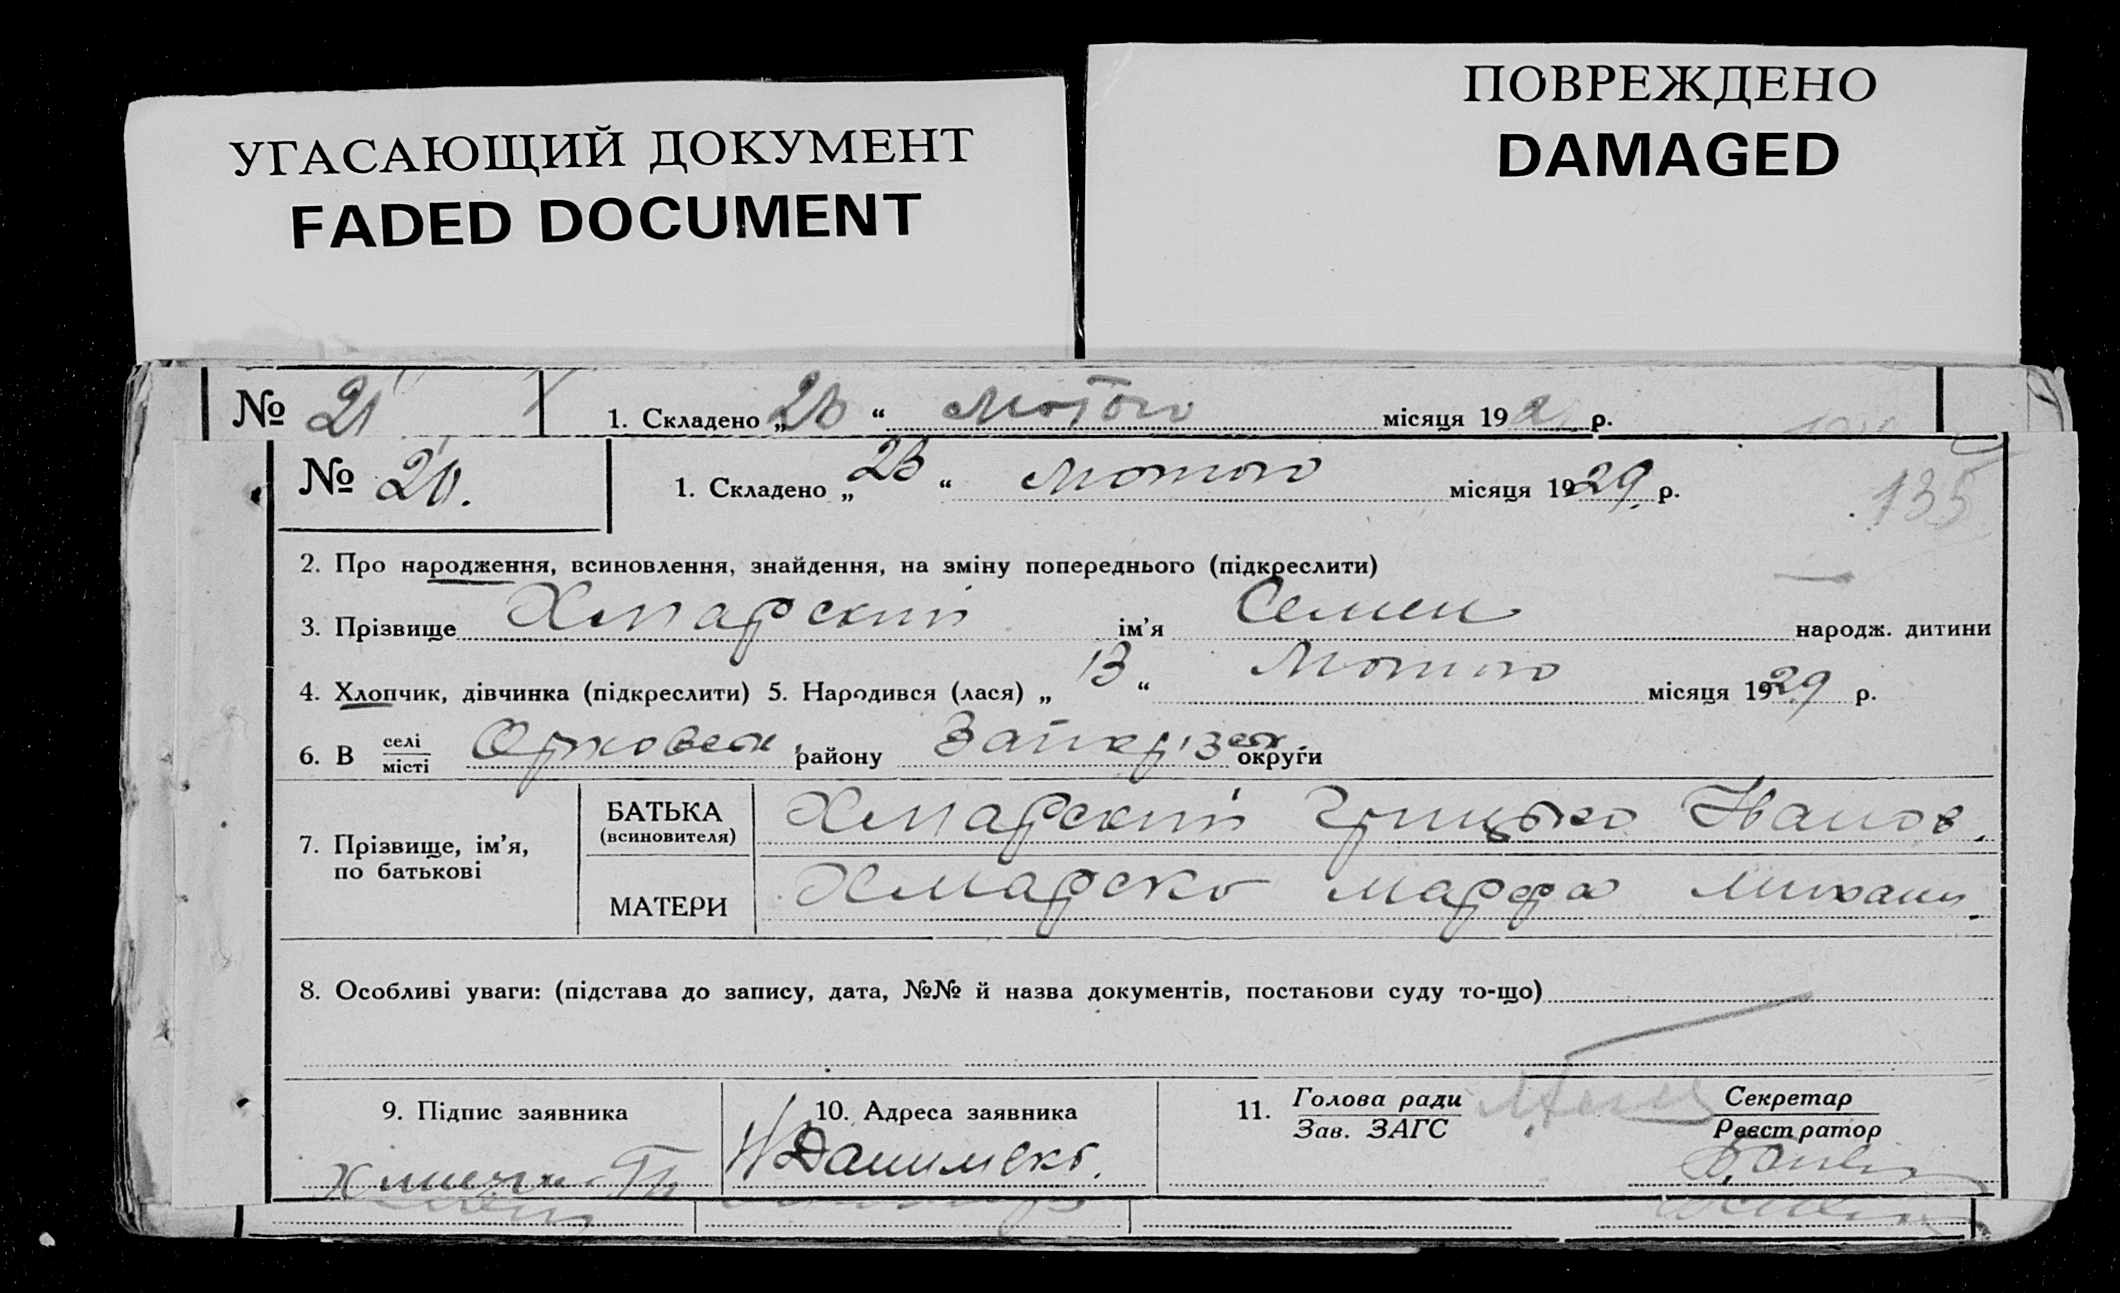 УГАСАЮЩИЙ ДОКУМЕНТ
FADED DOCUMENT
ПОВРЕЖДЕНО
DAMAGED
№ 21 1. Складено „ “ Мотого місяця 192 р.
№ 20. 1. Складено „23“ Мотого місяця 1929 р.
135
2. Про народження, всиновлення, знайдення, на зміну попереднього (підкреслити)
3. Прізвище Хмарский ім'я Семен народж. дитини
4. Хлопчик, дівчинка (підкреслити) 5. Народився (лася) „13“ Мотого місяця 1929 р.
6. В селі місті району округи
7. Прізвище, ім'я, по батькові
БАТЬКА (всиновителя) Хмарский Грицько Іванов.
МАТЕРИ Хмарско Марфа Михаил.
8. Особливі уваги: (підстава до запису, дата, №№ й назва документів, постанови суду то-що)
9. Підпис заявника
10. Адреса заявника
11. Голова ради Зав. ЗАГС
Секретар Реєстратор